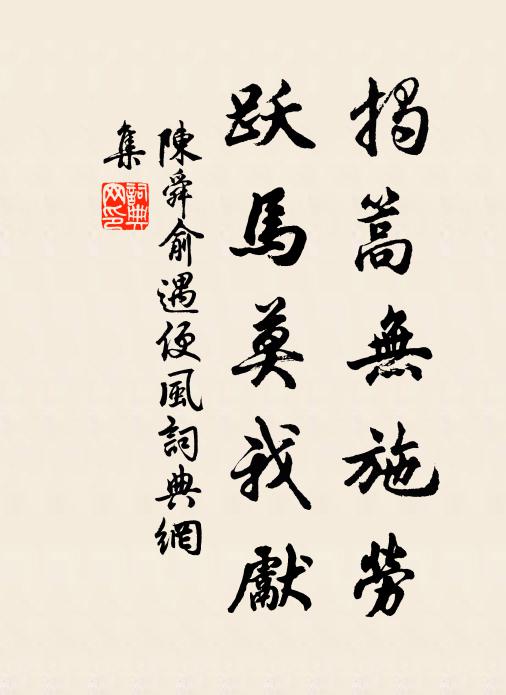 揭蒿無施勞
跃馬莫我獻
陳舜俞遇便風詞典網
集
詞典网印